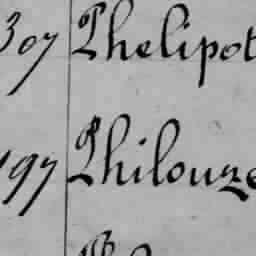 307 Phelipot
197 Philouze